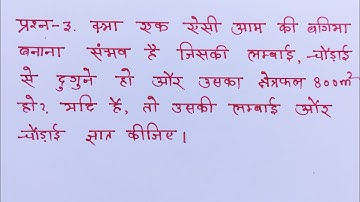 प्रश्न-3. क्या एक ऐसी आम की बगिया
बनाना संभव है जिसकी लम्बाई, चौड़ाई
से दुगुने हो और उसका क्षेत्रफल 800m²
हो?. यदि है, तो उसकी लम्बाई और
चौड़ाई ज्ञात कीजिए।